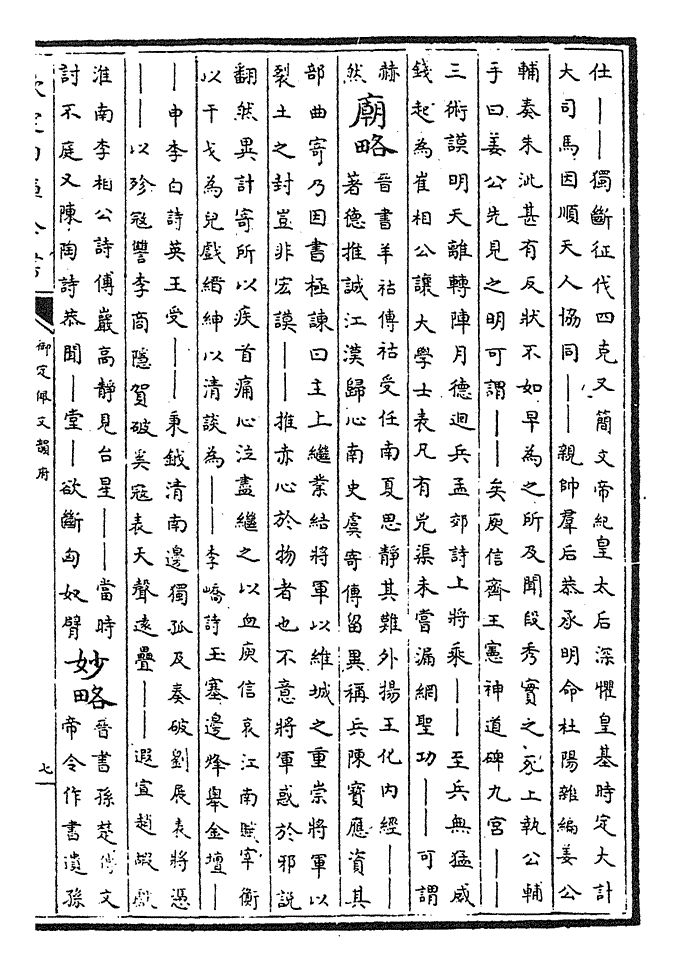 仕——獨斷征伐四克又簡文帝紀皇太后深懼皇基時定大計
大司馬因順天人協同——親帥羣后恭承明命杜陽雜編姜公
輔奏朱泚甚有反狀不如早為之所及聞段秀實之死上執公輔
手曰姜公先見之明可謂——矣庾信齊王憲神道碑九宮——
三術謨明天離轉陣月德迴兵孟郊詩上將乘——至兵無猛威
錢起為崔相公讓大學士表凡有兇渠未嘗漏網聖功——可謂
赫
然
廟略
晉書羊祜傳祜受任南夏思靜其難外揚王化內經——
著德推誠江漢歸心南史虞寄傳留異稱兵陳寶應資其
部曲寄乃因書極諫曰主上繼業結將軍以維城之重崇將軍以
裂土之封豈非宏謨——推亦心於物者也不意將軍惑於邪說
翻然異計寄所以疾首痛心泣盡繼之以血庾信哀江南賦宰衡
以干戈為兒戲縉紳以清談為——李嶠詩玉塞邊烽舉金壇—
—申李白詩英王受——秉鉞清南邊獨孤及奏破劉展表將憑
——以殄寇讐李商隱賀破奚寇表天聲遠疊——遐宣趙嘏獻
淮南李相公詩傅巖高靜見台星——當時
討不庭又陳陶詩恭聞—堂—欲斷匈奴臂
妙略
晉書孫楚傳文
帝令作書遺孫
欽定四庫全書
御定佩文韻府
七